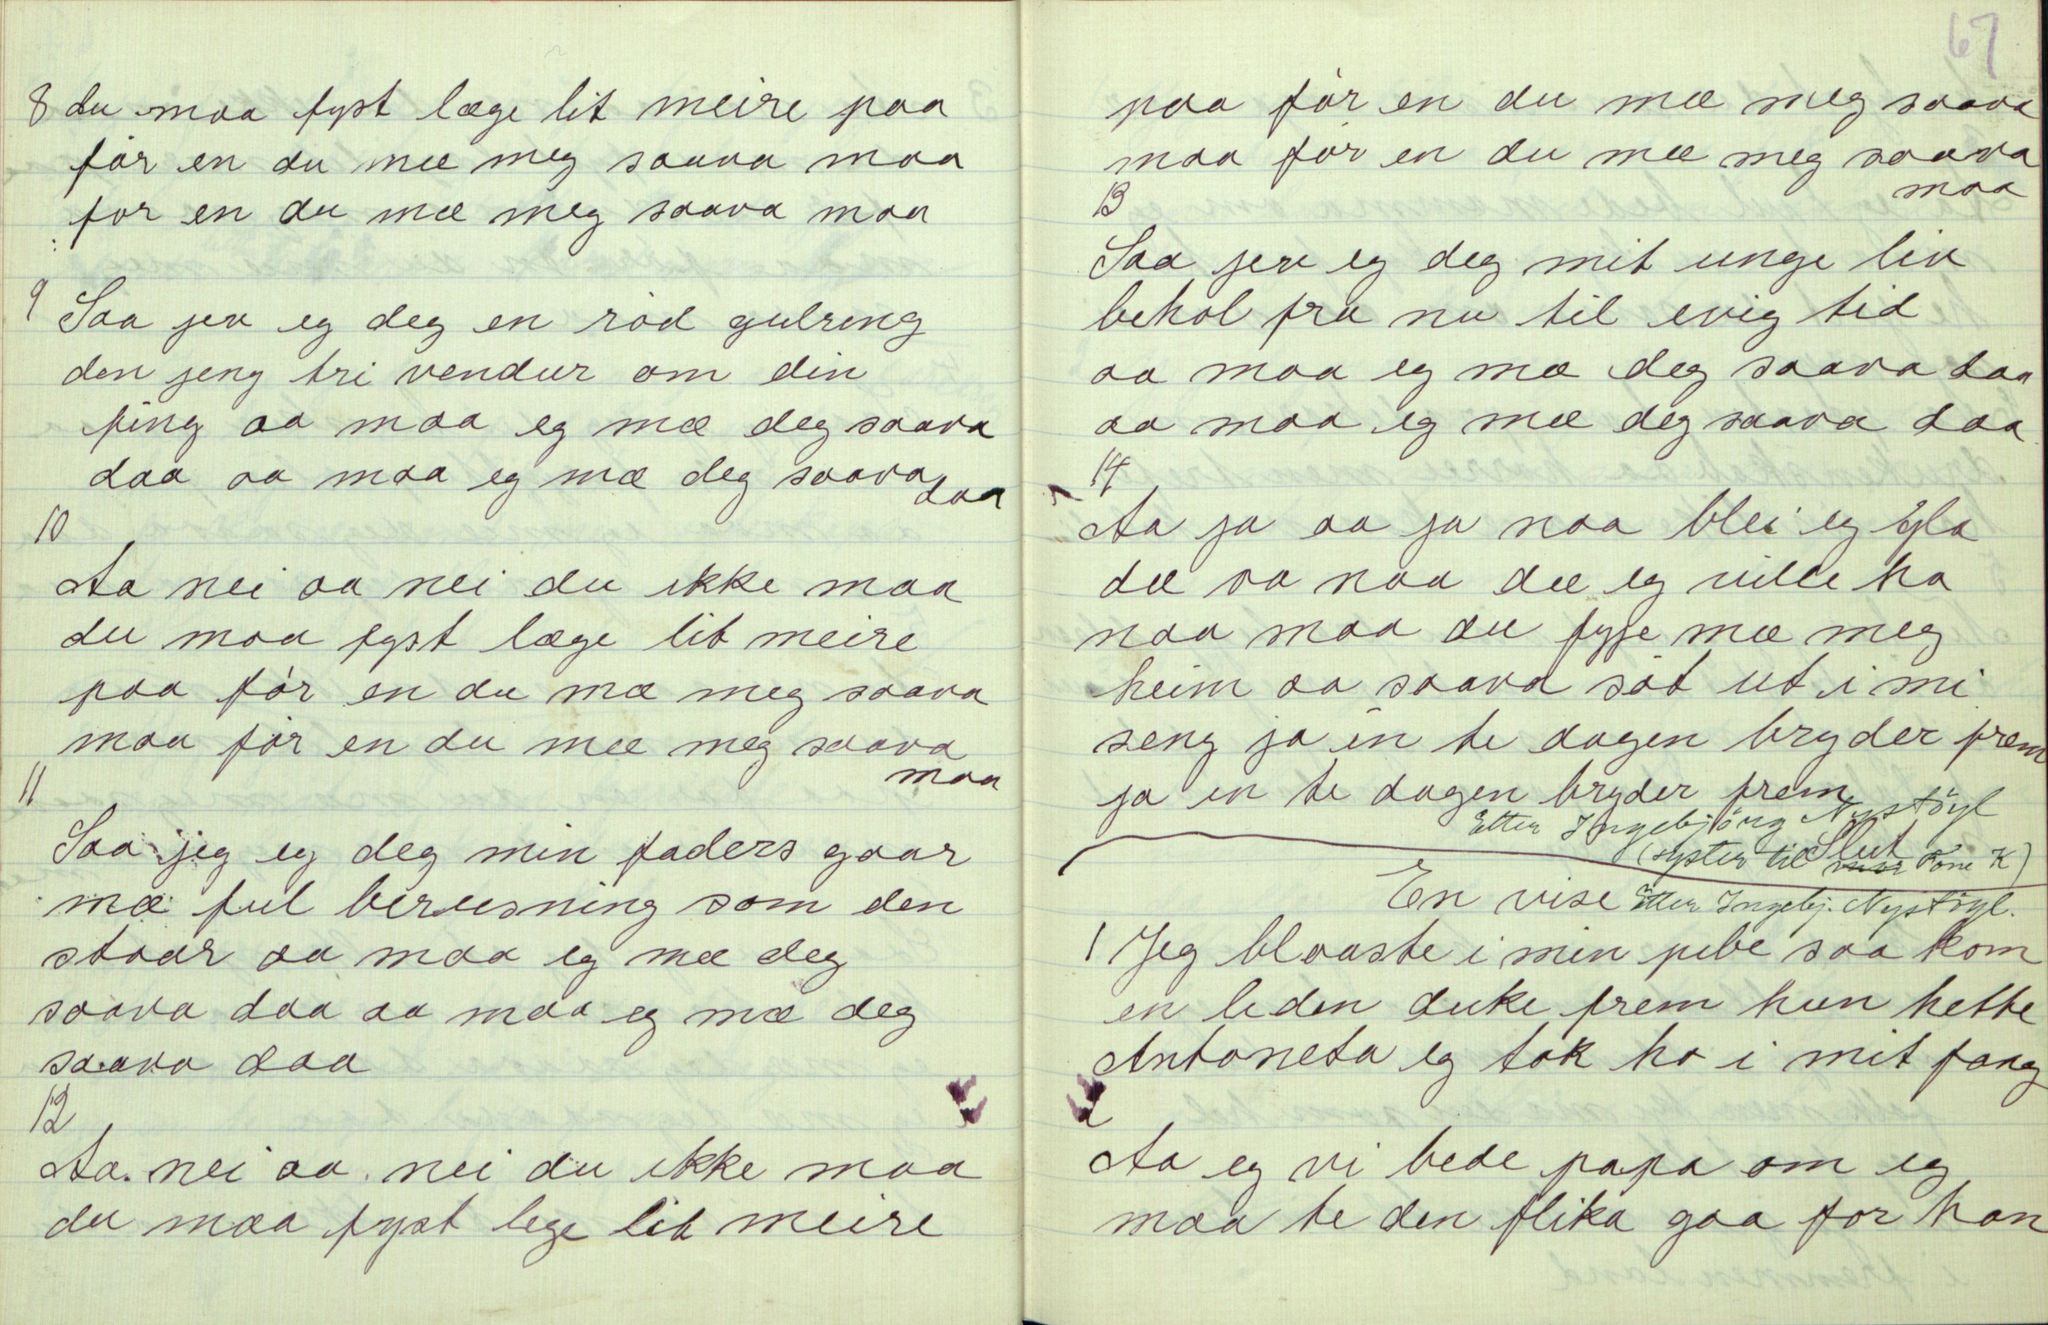 8 du maa fyst læge lit meire paa
før en du mæ meg saava maa
før en du mæ meg saava maa
9 Saa jev eg deg en rød gulring
den jeng tri vendur om din
fing aa maa eg mæ deg saava
daa aa maa eg mæ deg saava
daa
10
Aa nei aa nei du ikke maa
du maa fyst læge lit meire
paa før en du mæ meg saava
maa før en du mæ meg saava
maa
11
Saa jeg eg deg min faders gaar
mæ ful berusning som den
staar aa maa eg mæ deg
saava daa aa maa eg mæ deg
saava daa
12
Aa nei aa nei du ikke maa
du maa fyst lege lit meire
67
paa før en du mæ meg saava
maa før en du mæ meg saava
maa
13
Saa jev eg deg mit unge liv
behol fra nu til evig tid
aa maa eg mæ deg saava daa
aa maa eg mæ deg saava daa
14
Aa ja aa ja naa blei eg gla
dæ va naa dæ eg ville ha
naa maa du fyje mæ meg
heim aa saava søt ut i mi
seng ja en te dagen bryder frem
ja en te dagen bryder frem
Etter Ingebjörg Nystöyl
(syster til Tone K)
Slut
En vise Etter Ingebj. Nystöyl.
1 Jeg blaaste i min pibe saa kom
en leden duke frem hun hette
Antoneta eg tok ho i mit fang
2
Aa eg vi bede papa om eg
maa te den flika gaa for han